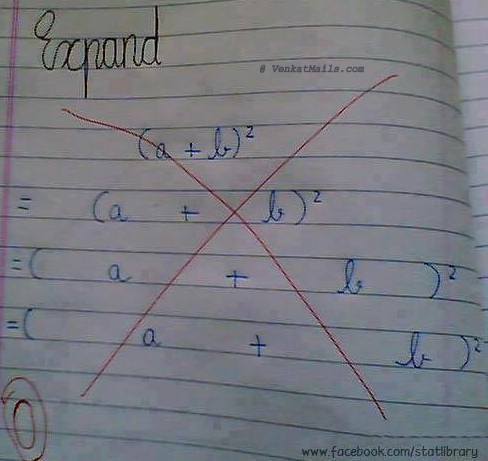 Expand
@ VenkatMails.com
(a + b)²
= (a + b)²
= ( a + b )²
= ( a + b )²
0
www.facebook.com/statlibrary